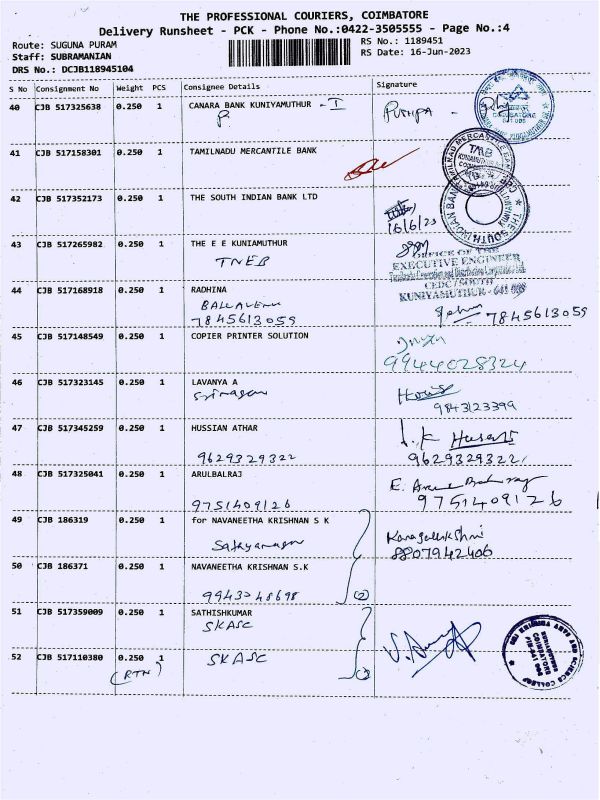 THE PROFESSIONAL COURIERS, COIMBATORE
Delivery Runsheet - PCK - Phone No.:0422-3505555 - Page No.:4
Route: SUGUNA PURAM
RS No.: 1189451
Staff: SUBRAMANIAN
RS Date: 16-Jun-2023
DRS No.: DCJB118945104
S No Consignment No Weight PCS Consignee Details Signature
40 CJB 517325638 0.250 1 CANARA BANK KUNIYAMUTHUR - I
P PUSHPA -
41 CJB 517158301 0.250 1 TAMILNADU MERCANTILE BANK
TAMILNAD MERCANTILE BANK
TMB
42 CJB 517352173 0.250 1 THE SOUTH INDIAN BANK LTD
16/6/23
THE SOUTH INDIAN BANK
43 CJB 517265982 0.250 1 THE E E KUNIAMUTHUR
TNEB
OFFICE OF THE
EXECUTIVE ENGINEER
CEDC/SOUTH
KUNIYAMUTHUR - 641 008
44 CJB 517168918 0.250 1 RADHINA
7845613059 7845613059
45 CJB 517148549 0.250 1 COPIER PRINTER SOLUTION
9944028324
46 CJB 517323145 0.250 1 LAVANYA A
Srinagar
9843123399
47 CJB 517345259 0.250 1 HUSSIAN ATHAR
9629329322 9629329322
48 CJB 517325041 0.250 1 ARULBALRAJ
9751409126 9751409126
49 CJB 186319 0.250 1 for NAVANEETHA KRISHNAN S K
Sathyanagar
8807942406
50 CJB 186371 0.250 1 NAVANEETHA KRISHNAN S.K
9943048698 (2)
51 CJB 517359009 0.250 1 SATHISHKUMAR
SKASC
52 CJB 517110380 0.250 1 SKASC
(RTN) (2)
SRI KRISHNA ARTS AND SCIENCE COLLEGE